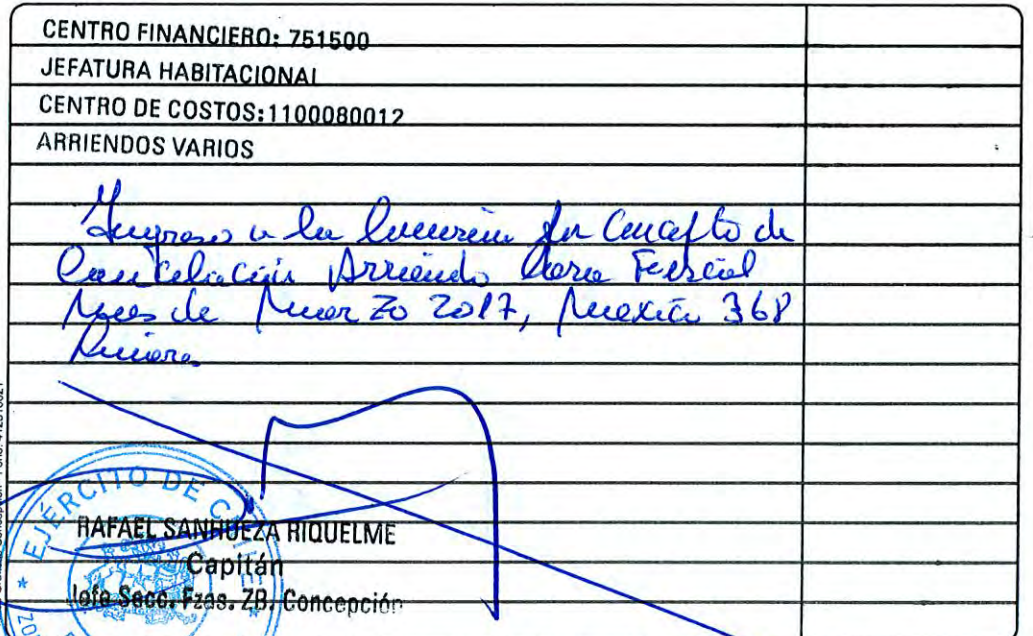 CENTRO FINANCIERO: 751500
JEFATURA HABITACIONAL
CENTRO DE COSTOS:1100080012
ARRIENDOS VARIOS
Ingreso a la por Concepto de
Cancelación Arriendo Casa Fiscal
Mes de Marzo 2017, Mexico 368
EJÉRCITO DE CHILE
RAFAEL SANHUEZA RIQUELME
Capitán
Jefe Secc. Fzas. ZB. Concepción